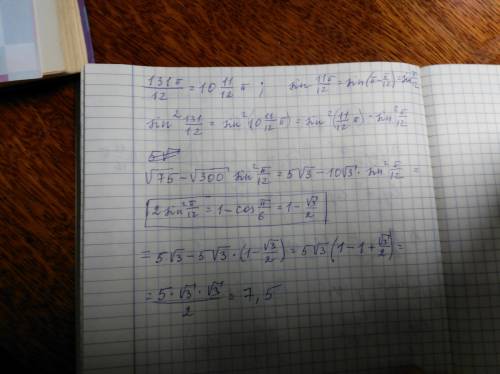 131π/12 = 10 11/12 π ; sin 11π/12 = sin(π - π/12) = sin π/12
sin² 131/12 = sin²(10 11/12 π) = sin²(11/12 π) = sin² π/12
√75 - √300 sin² π/12 = 5√3 - 10√3 · sin² π/12 =
2 sin² π/12 = 1 - cos π/6 = 1 - √3/2
= 5√3 - 5√3 · (1 - √3/2) = 5√3 (1 - 1 + √3/2) =
= 5 · √3 · √3 / 2 = 7,5